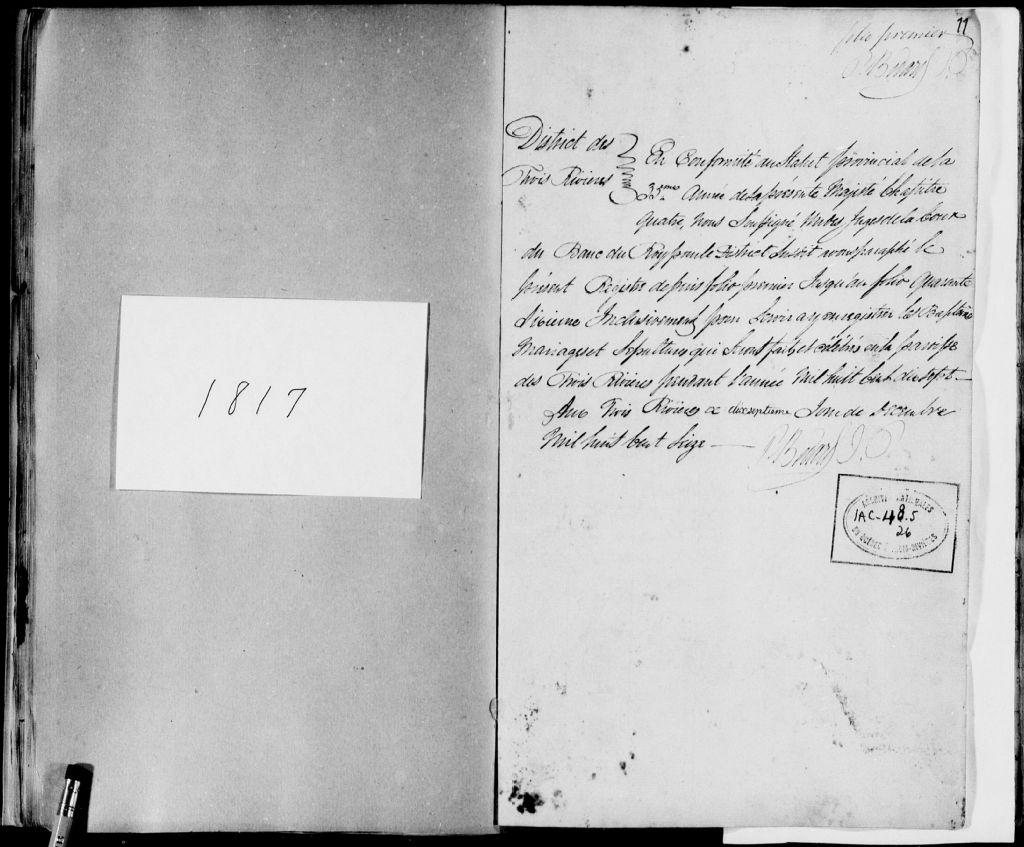 1817
11
folio premier
P. Bedard J. P.
District des
Trois Rivieres
En Conformité au Statut provincial de la
35.me Année de sa présente Majesté Chapitre
Quatre, nous Soussigné un des Juges de la Cour
du Banc du Roy pour le District Susdit avons paraphé le
présent Registre depuis folio premier Jusqu'au folio Quarante
Inclusivement pour Servir a y enregistrer les Baptême
Mariages et Sepultures qui Seront faits et célébrés en la paroisse
des Trois Rivières pendant l'année Mil huit Cent dix Sept —
Aux Trois Rivières ce dixseptieme Jour de Decembre
Mil huit Cent Seize —
P. Bedard J. P.
ARCHIVES NATIONALES
IAC-48.5
26
DU QUÉBEC À TROIS-RIVIÈRES